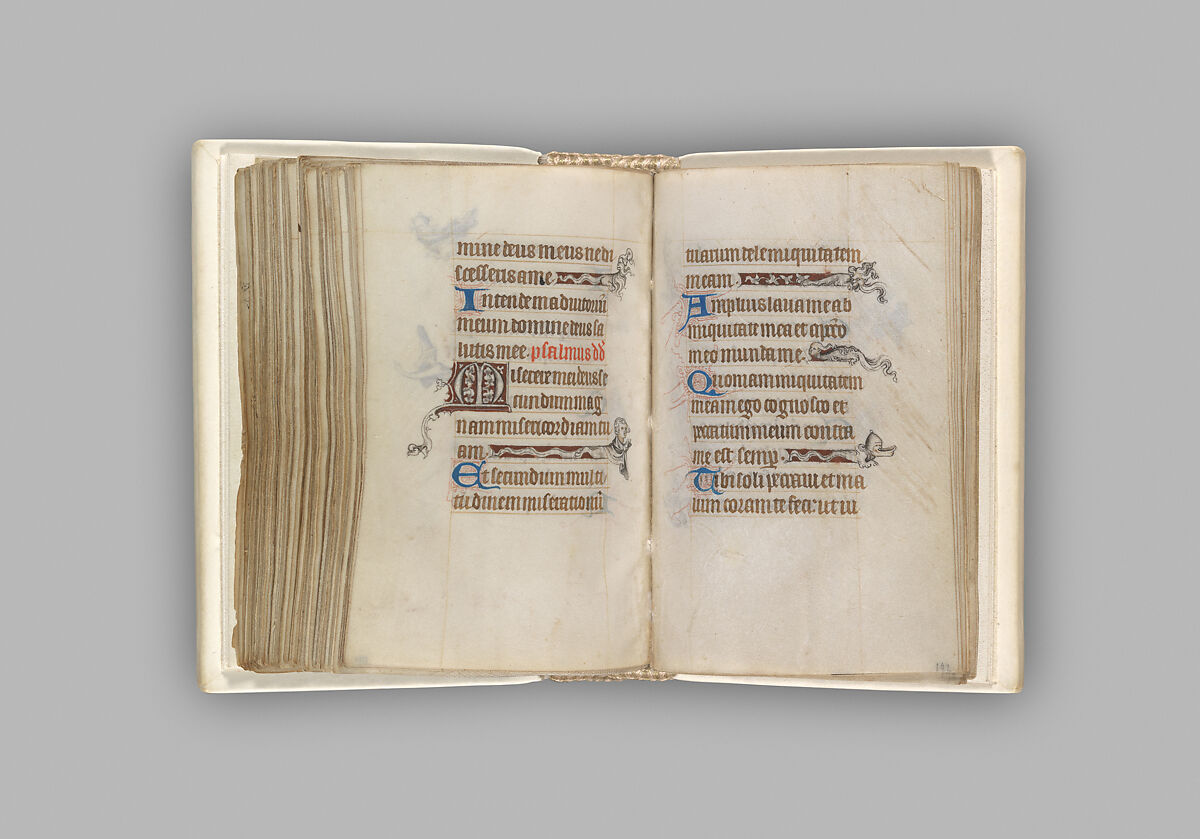 mine deus meus ne di
scesseris a me
Intende in adiutoriū
meum domine deus sa
lutis mee. psalmus dd
Miserere mei deus se
cundum mag
nam misericordiam tu
am.
Et secundum multi
tudinem miserationū
tuarum dele iniquitatem
meam.
Amplius laua me ab
iniquitate mea et a pccō
meo munda me.
Quoniam iniquitatem
meam ego cognosco et
peccatum meum contra
me est semp.
Tibi soli peccaui et ma
lum coram te feci: ut iu
192